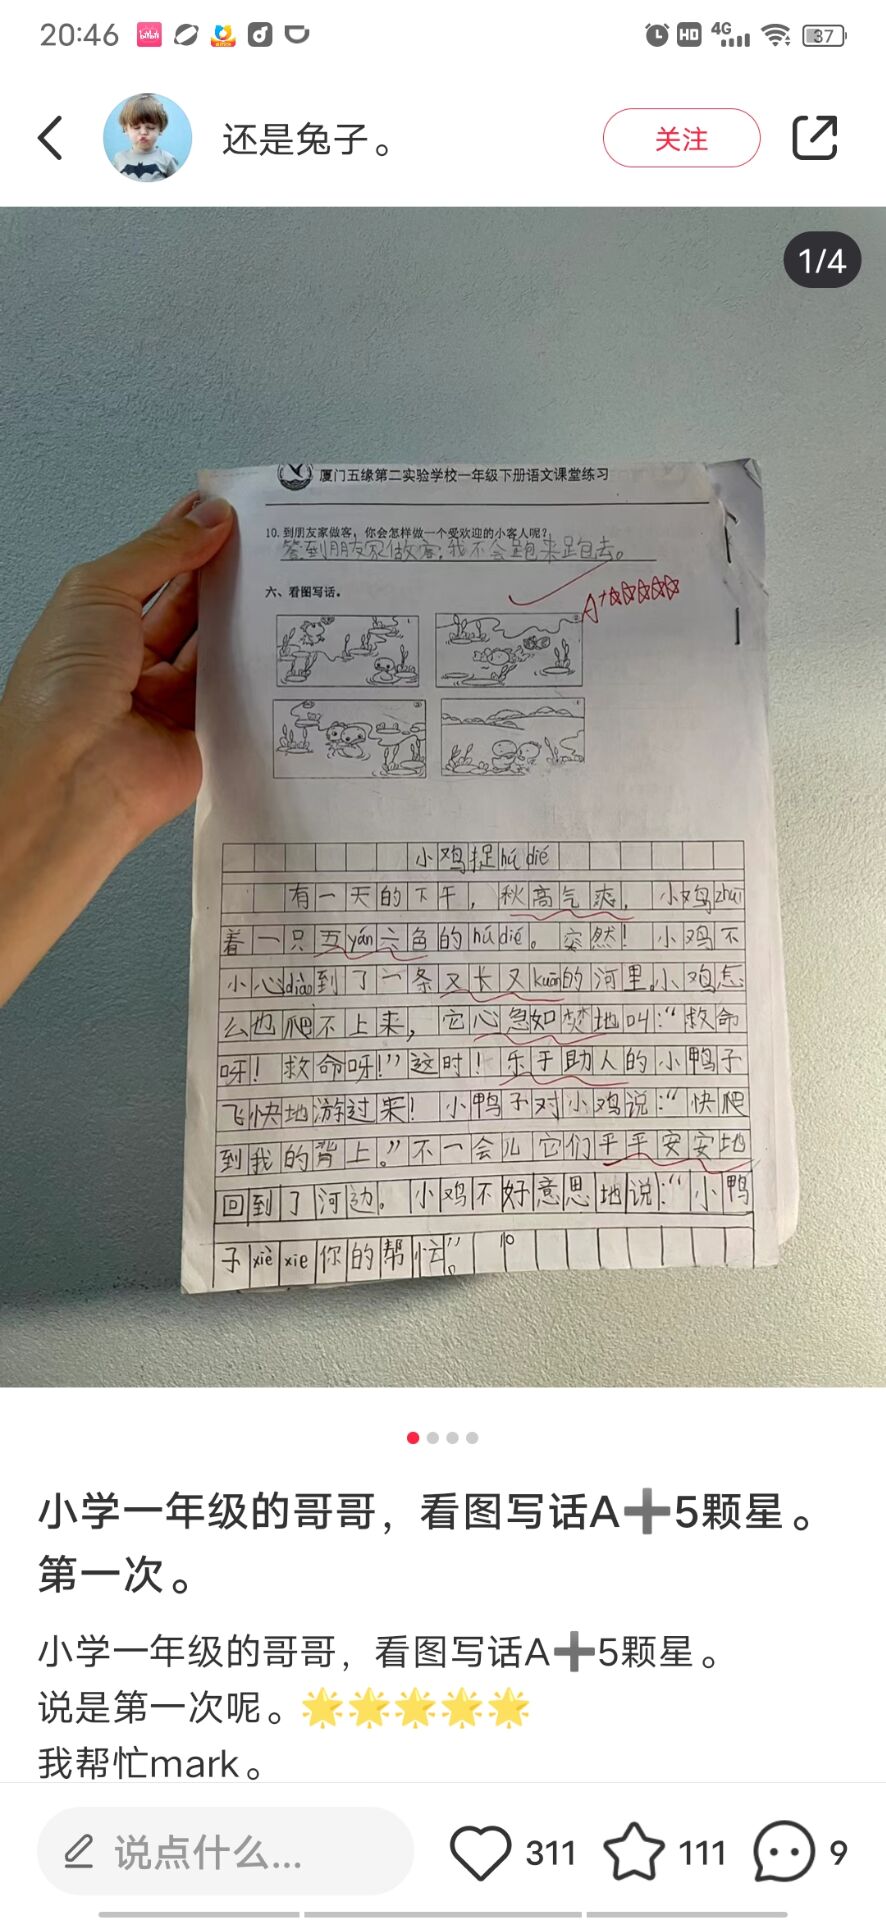 20:46
HD 4G 37
还是兔子。
关注
1/4
厦门五缘第二实验学校一年级下册语文课堂练习
10. 到朋友家做客，你会怎样做一个受欢迎的小客人呢？
答到朋友家做客，我不会跑来跑去。
六、看图写话。
A+
小鸡捉hú dié
有一天的下午，秋高气爽，小鸡zhuī
着一只五yán六色的hú dié。突然！小鸡不
小心diào到了一条又长又kuān的河里。小鸡怎
么也爬不上来，它心急如焚地叫：“救命
呀！救命呀！”这时！乐于助人的小鸭子
飞快地游过来！小鸭子对小鸡说：“快爬
到我的背上。”不一会儿它们平平安安地
回到了河边。小鸡不好意思地说：“小鸭
子xiè xie你的帮忙”。
小学一年级的哥哥，看图写话A➕5颗星。
第一次。
小学一年级的哥哥，看图写话A➕5颗星。
说是第一次呢。🌟🌟🌟🌟🌟
我帮忙mark。
说点什么...
311
111
9